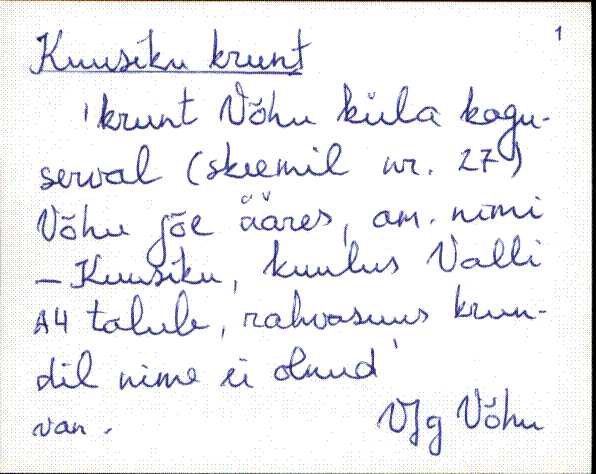 1
Kuusiku krunt
'krunt Võhu küla kagu-
serval (skeemil nr. 27)
Võhu jõe ääres, am. nimi
– Kuusiku, kuulus Valli
A4 talule, rahvasuus krun-
dil nime ei olnud
van. Vjg Võhu